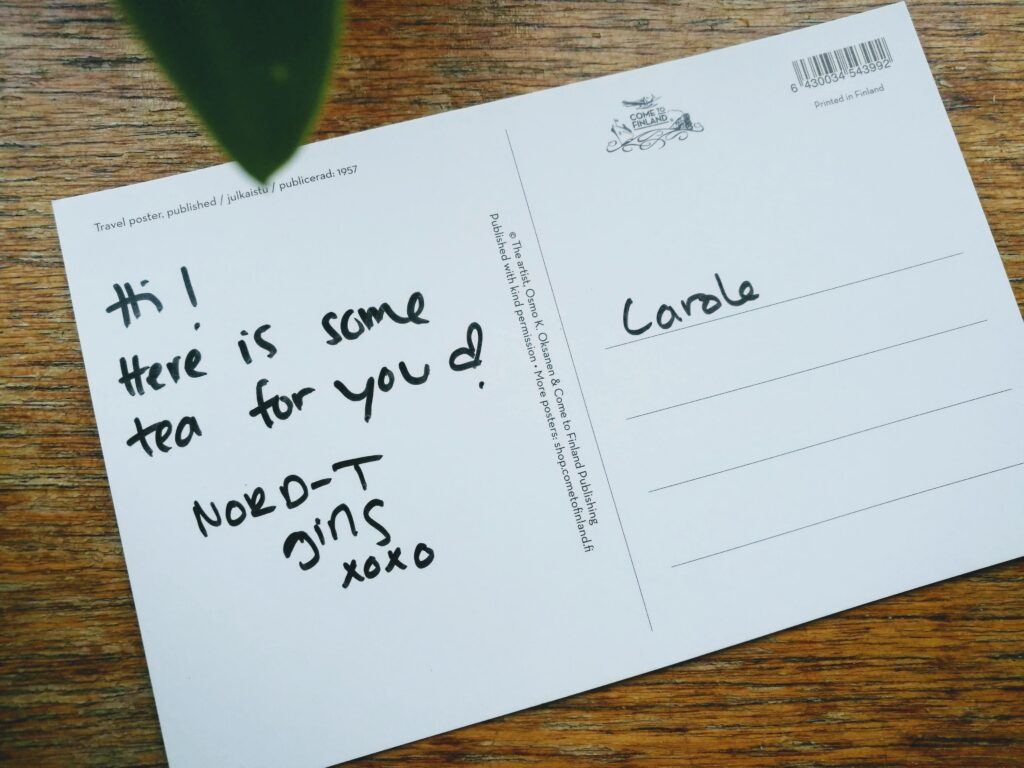 Travel poster, published / julkaistu / publicerad: 1957
Hi!
Here is some
tea for you
NORD-T
girls
xoxo
© The artist, Osmo K. Oksanen & Come to Finland Publishing
Published with kind permission • More posters: shop.cometofinland.fi
COME TO
FINLAND
6 430034 543992
Printed in Finland
Carole